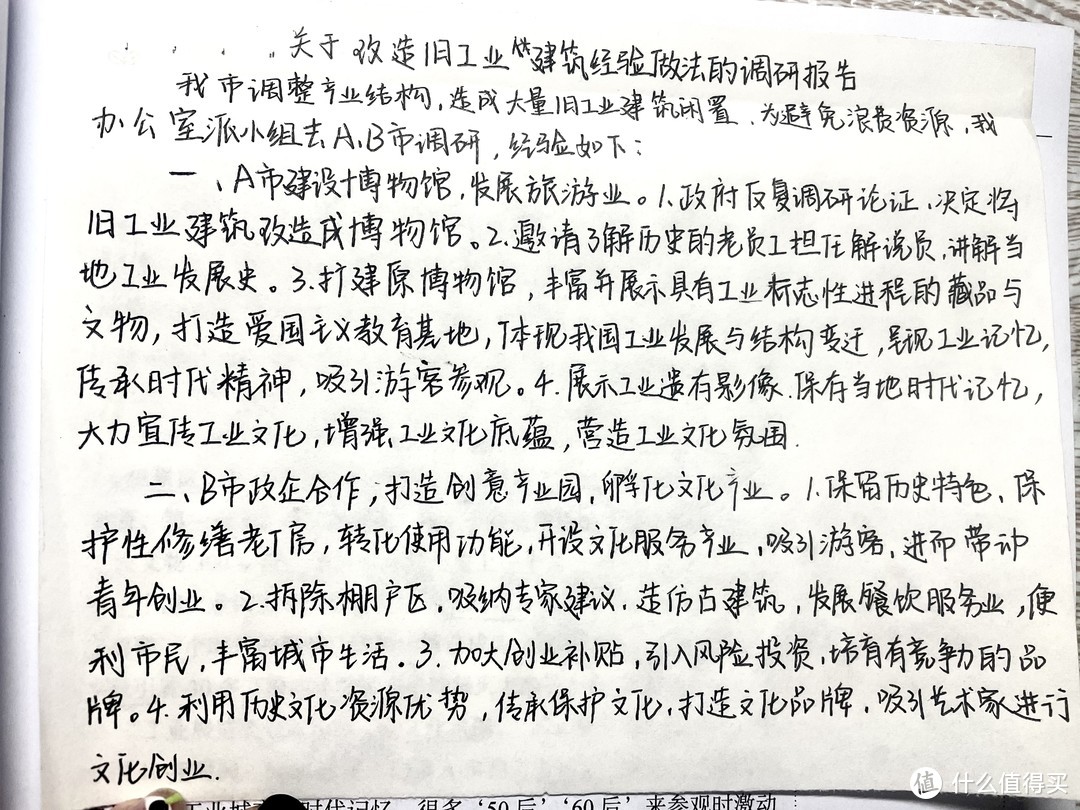 关于改造旧工业建筑经验做法的调研报告
我市调整产业结构,造成大量旧工业建筑闲置,为避免浪费资源,我
办公室派小组去A、B市调研,经验如下:
一、A市建设博物馆,发展旅游业。1.政府反复调研论证,决定将
旧工业建筑改造成博物馆。2.邀请了解历史的老员工担任解说员,讲解当
地工业发展史。3.扩建原博物馆,丰富并展示具有工业标志性进程的藏品与
文物,打造爱国主义教育基地,体现我国工业发展与结构变迁,呈现工业记忆,
传承时代精神,吸引游客参观。4.展示工业遗存影像.保存当地时代记忆,
大力宣传工业文化,增强工业文化底蕴,营造工业文化氛围.
二、B市政企合作,打造创意产业园,孵化文化产业。1.保留历史特色、保
护性修缮老厂房,转化使用功能,开设文化服务产业,吸引游客,进而带动
青年创业。2.拆除棚户区,吸纳专家建议.造仿古建筑,发展餐饮服务业,便
利市民,丰富城市生活。3.加大创业补贴,引入风险投资,培育有竞争力的品
牌。4.利用历史文化资源优势,传承保护文化,打造文化品牌,吸引艺术家进行
文化创业.
时代记忆,很多'50后''60后'来参观时激动
值 什么值得买